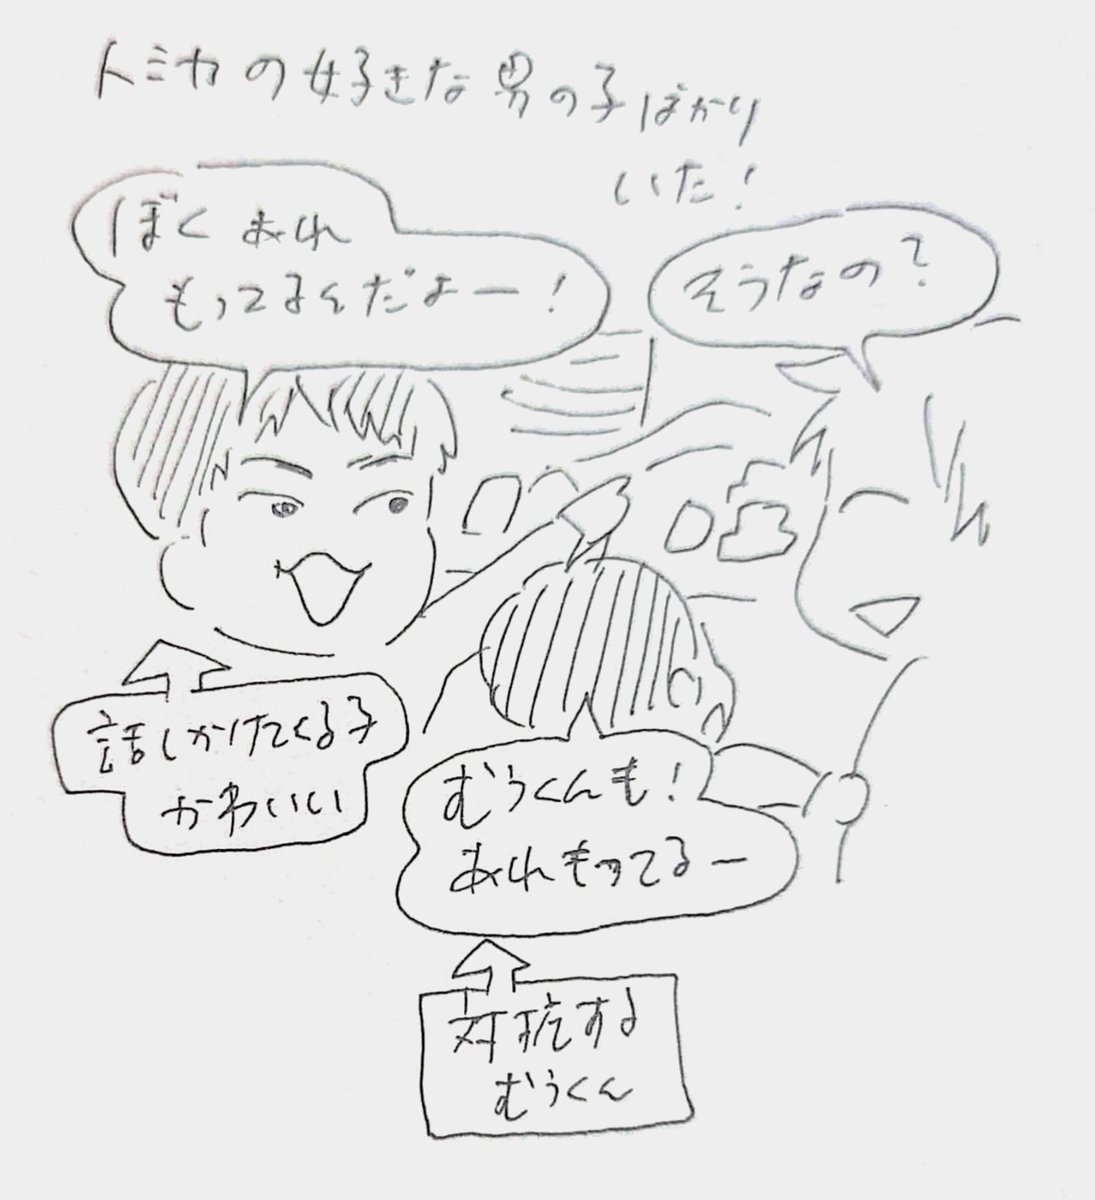 トミカの好きな男の子ばかり
いた!
ぼくあれ
もってるんだよー!
そうなの?
話しかけてくる子
かわいい
むうくんも!
あれもってるー
対抗する
むうくん